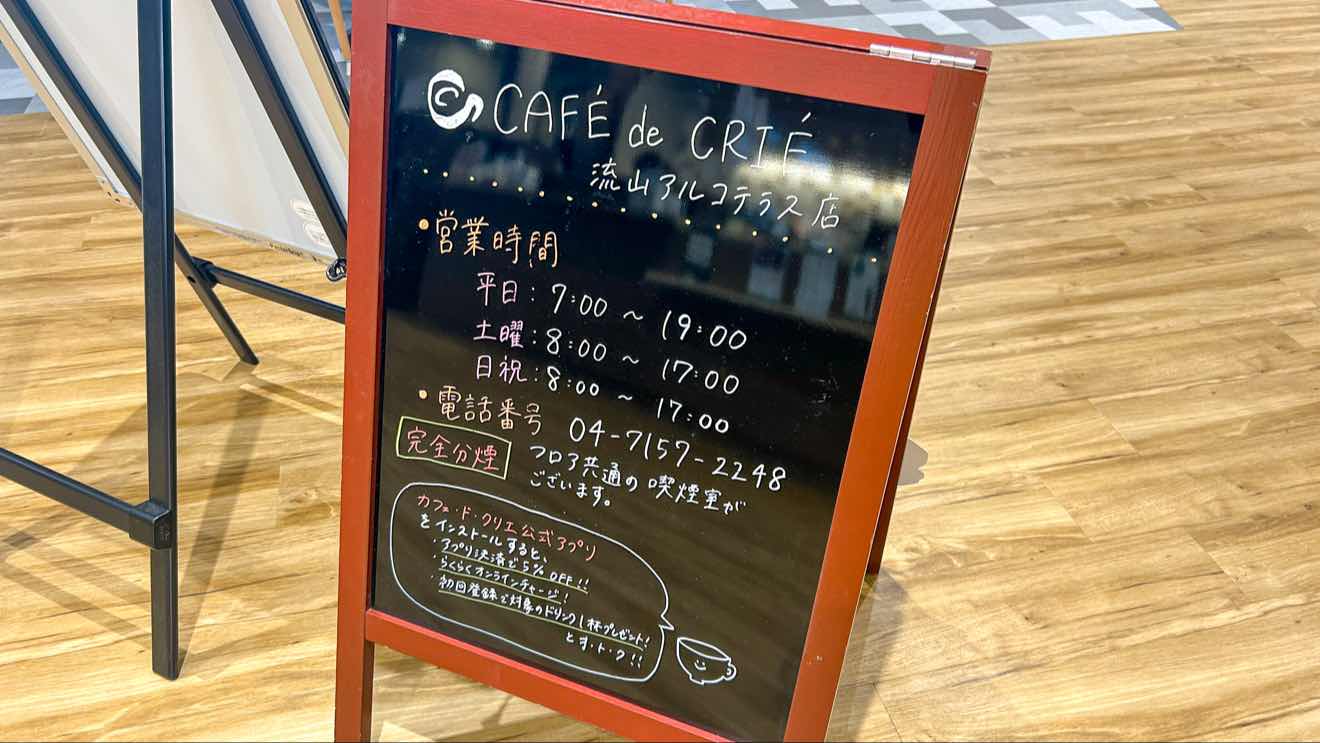 CAFÉ de CRIÉ
流山アルコテラス店
・営業時間
平日：7:00 ～ 19:00
土曜：8:00 ～ 17:00
日祝：8:00 ～ 17:00
・電話番号 04-7157-2248
完全分煙 フロア共通の喫煙室が
ございます。
カフェ・ド・クリエ公式アプリ
をインストールすると、
・アプリ決済で5％OFF!!
らくらくオンラインチャージ!
・初回登録で対象のドリンク1杯プレゼント!
とオ・ト・ク!!